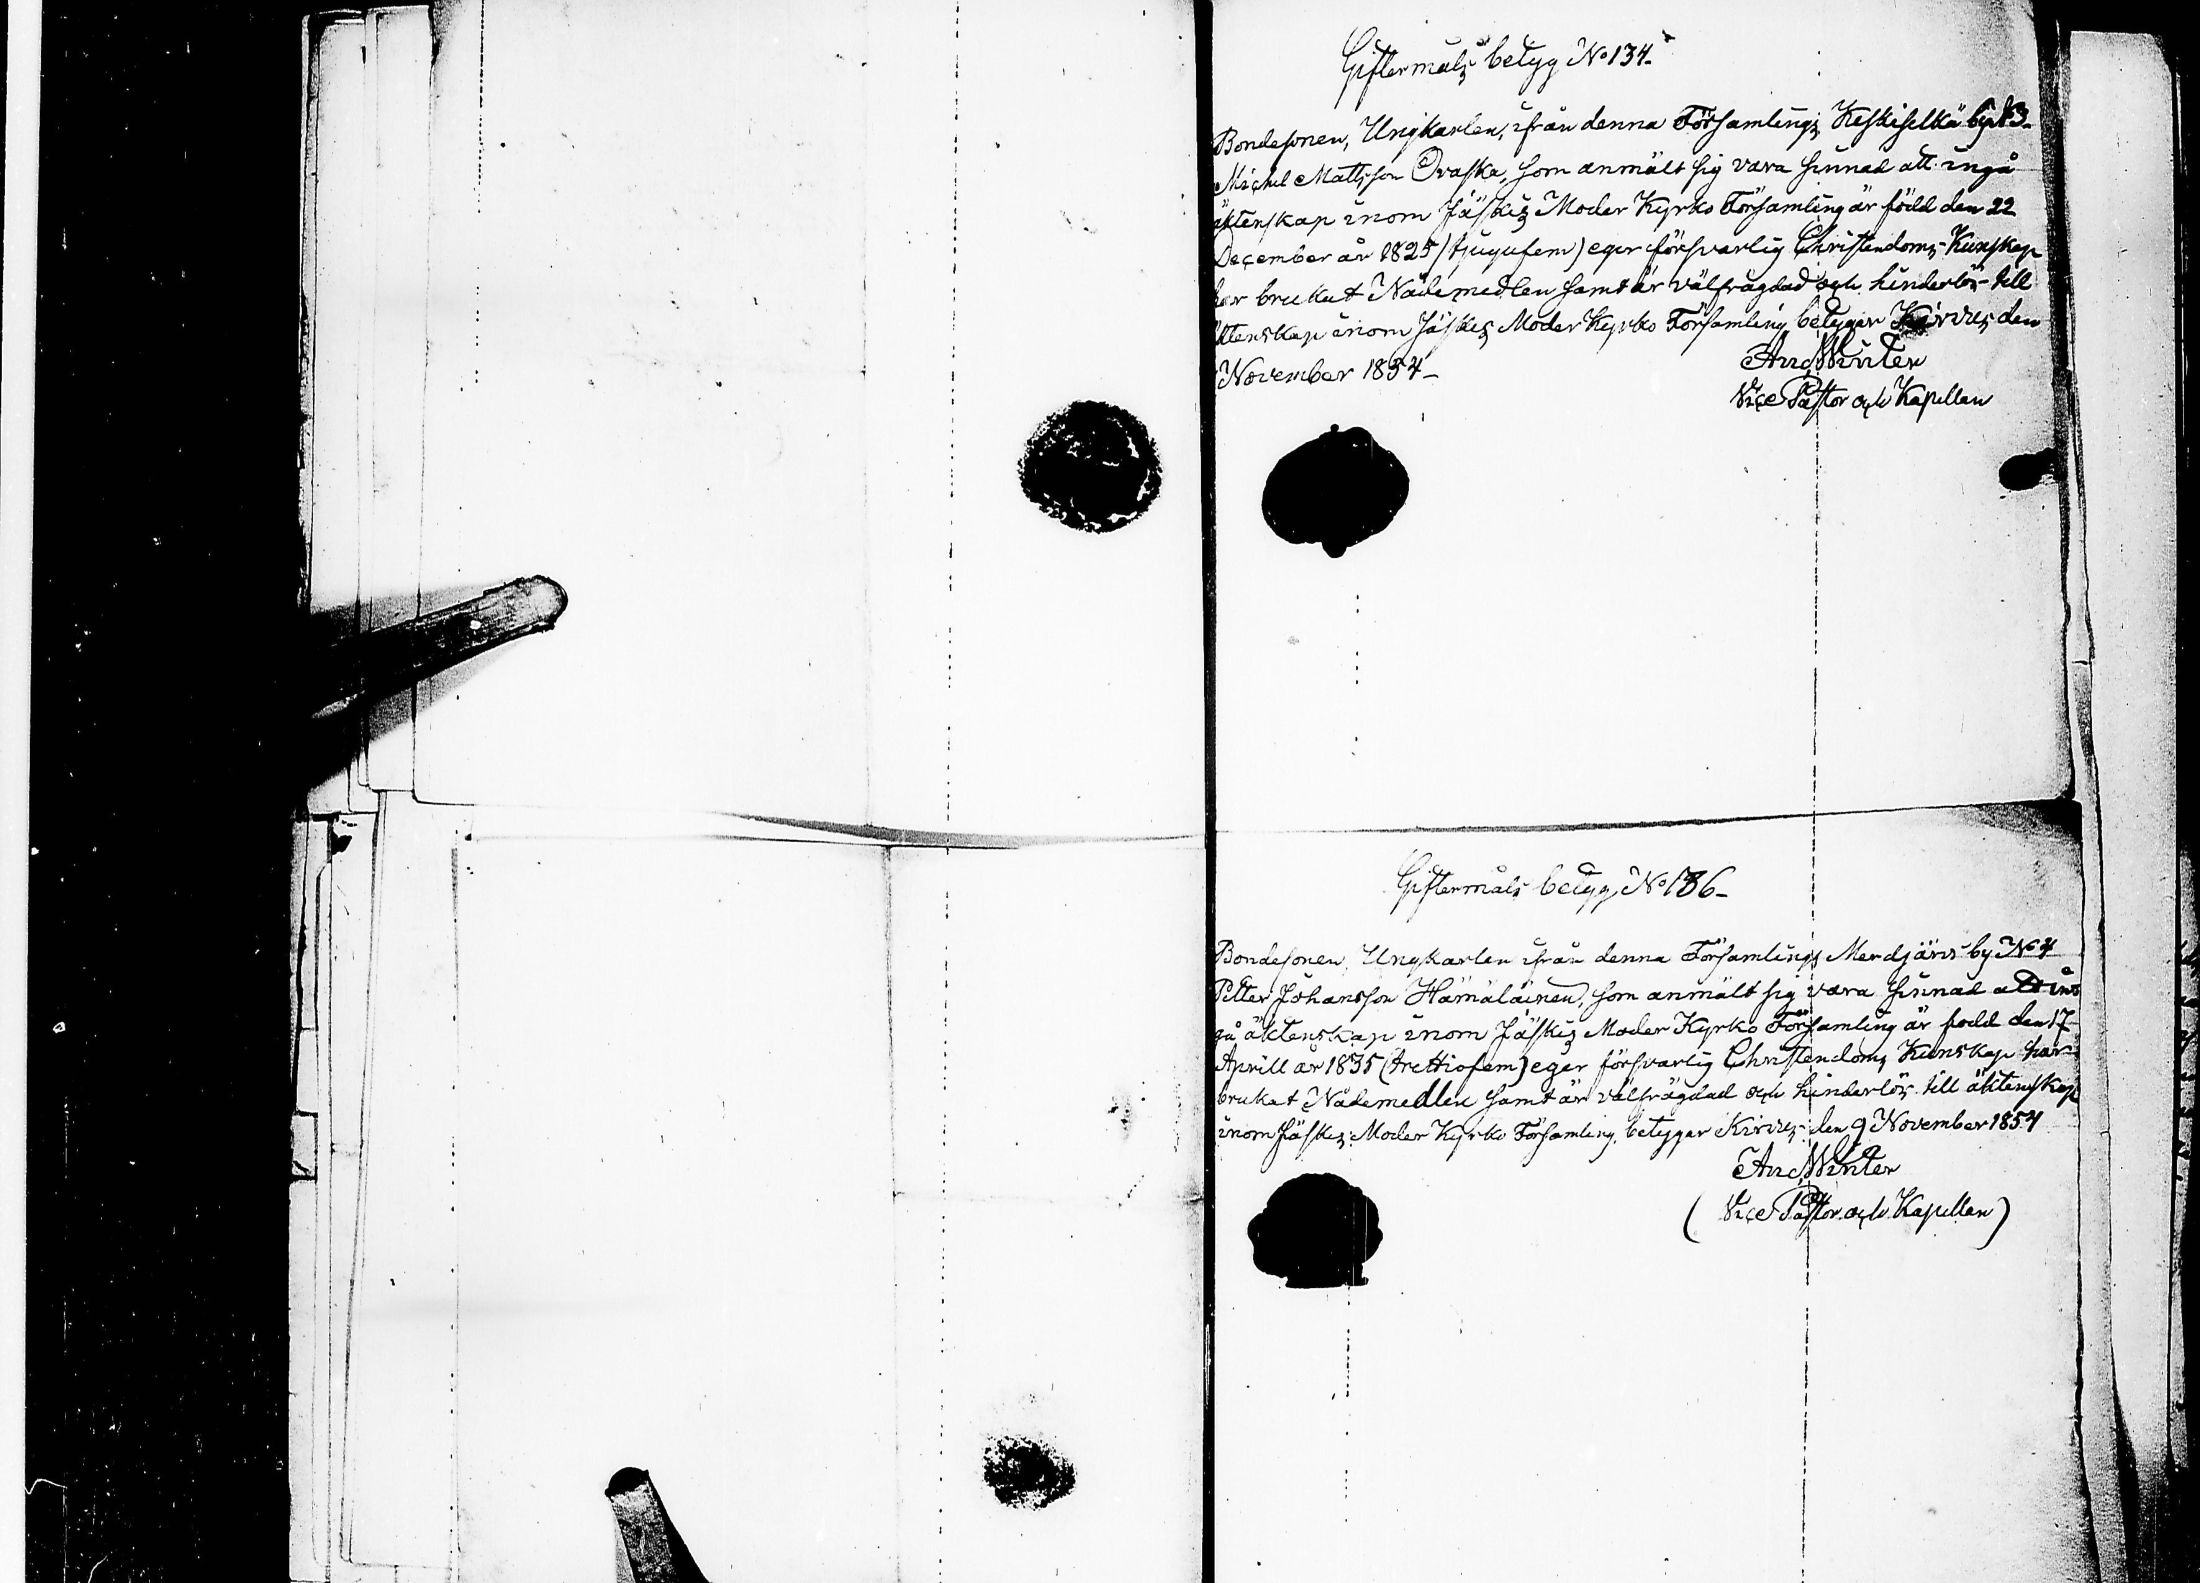 Giftermåls betyg No 134.
Bondesonen, Ungkarlen, ifrån denna Församlings Keskiselkä by № 3.
Michel Mattsson Ovaska, som anmält sig vara sinnad att ingå
äktenskap inom Jäskis Moder Kyrko Församling är född den 22
December år 1825 (tjugufem) eger försvarlig Christendoms-Kunskap
har brukat Nådemedlen samt är välfrägdad och hinderlös till
äktenskap inom Jäskis Moder Kyrko Församling, betygar Kirvus den
November 1854
And Winter
Vice Pastor och Kapellan
Giftermåls betyg No 136
Bondesonen, Ungkarlen ifrån denna Församlings Merdjärvi by No 4
Petter Johansson Hämäläinen, som anmält sig vara sinnad att in
gå äktenskap inom Jäskis Moder Kyrko Församling är född den 17
Aprill år 1835 (trettiofem) eger försvarlig Christendoms Kunskap har
brukat Nådemedlen samt är välfrägdad och hinderlös till äktenskap
inom Jäskis Moder Kyrko Församling, betygar Kirvus den 9 November 1854
And Winter
(Vice Pastor och Kapellan)